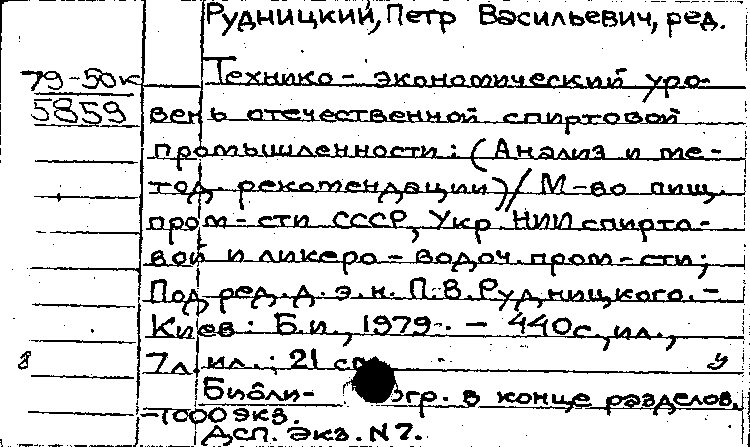 Рудницкий, Петр Васильевич, ред.
79-50к
5859
Технико-экономический уро-
вень отечественной спиртовой
промышленности: (Анализ и ме-
тод. рекомендации)/ М-во пищ.
пром-сти СССР, Укр. НИИ спирто-
вой и ликеро-водоч. пром-сти;
Под ред. д. э. н. П. В. Рудницкого. -
Киев: Б. и., 1979. - 440 с., ил.,
7 л. ил.; 21 см
Библиогр. в конце разделов.
-1000 экз.
Дсп. Экз. N 7.